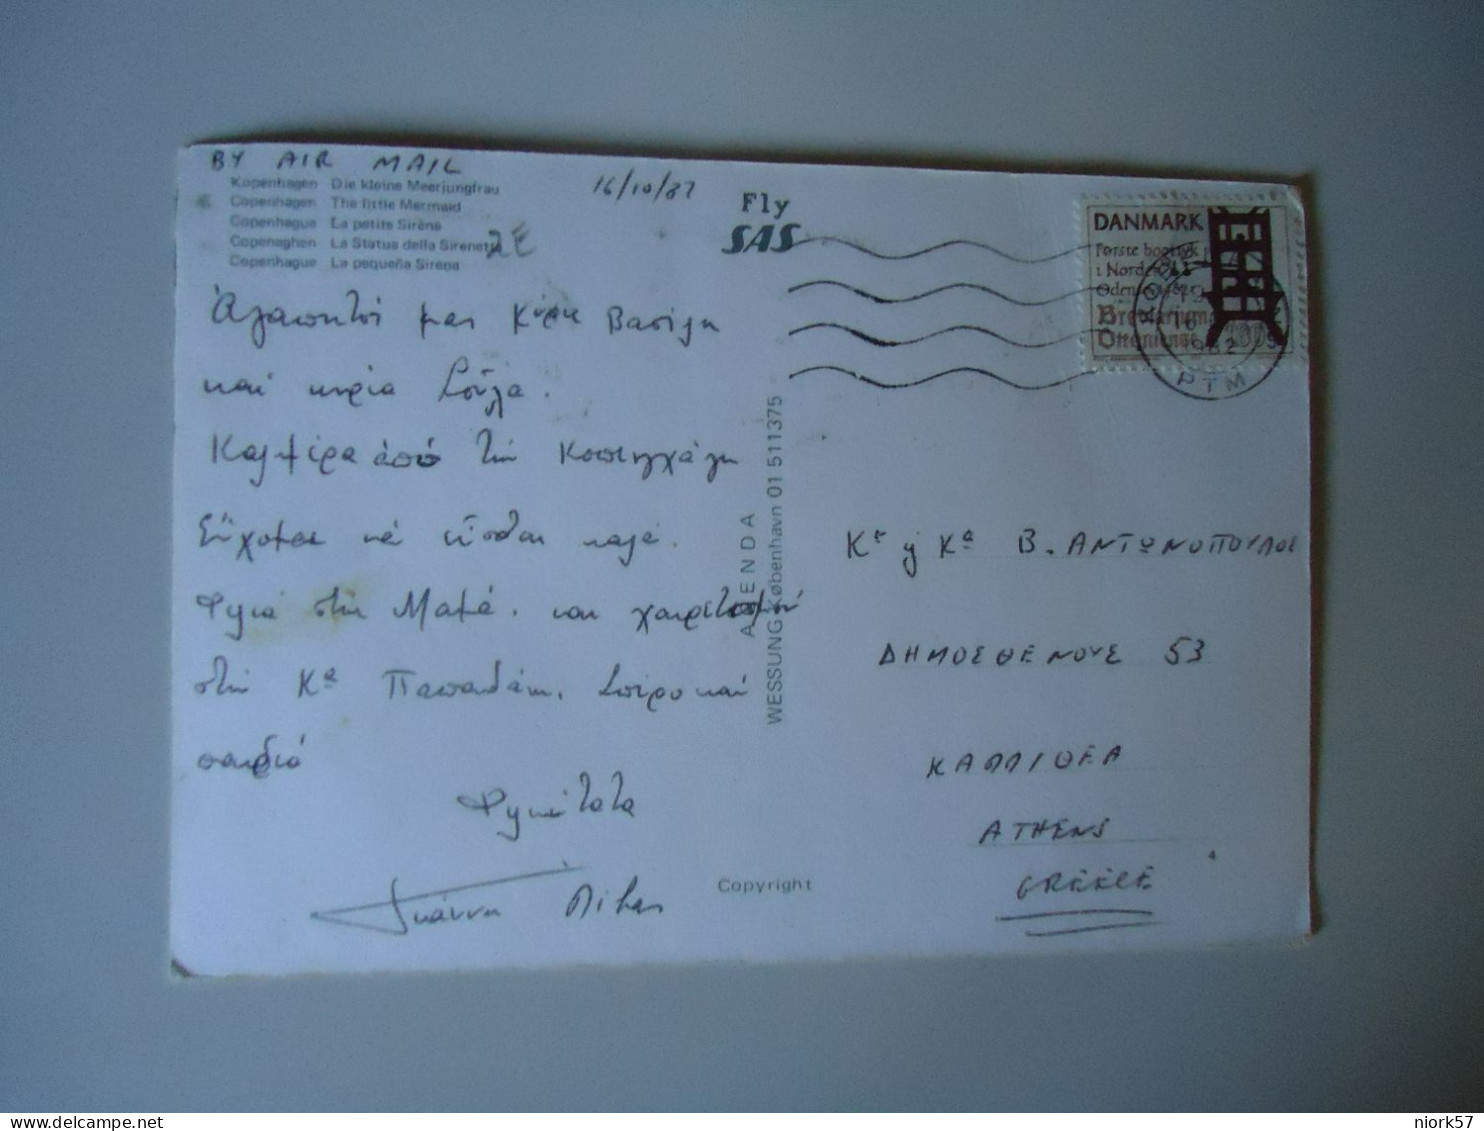 BY AIR MAIL
Kopenhagen Die kleine Meerjungfrau
Copenhagen The little Mermaid
Copenhague La petite Sirène
Copenaghen La Statua della Sirenetta
Copenhague La pequeña Sirena
2E
16/10/82
Fly
SAS
DANMARK
Første bogtryk i
i Norden
Odense 1482
Breviarium
Ottoniense
1982
PTM
Ἀγαπητοί μας Κύριε Βασίλη
καί κυρία Σούλα.
Καλημέρα ἀπό τήν Κοπεγχάγη
Εὔχομαι νά εἶσθαι καλά.
Φιλιά στήν Μαμά. και χαιρετισμού
στήν Κα Παπαδάκη, Σπύρο καί
παιδιά
Φιλικότατα
Γιάννη
AGENDA
WESSUNG København 01 511375
Copyright
Κν ή Κα Β. ΑΝΤΩΝΟΠΟΥΛΟΥ
ΔΗΜΟΣΘΕΝΟΥΣ 53
ΚΑΛΛΙΘΕΑ
ATHENS
GREECE
4
niork57